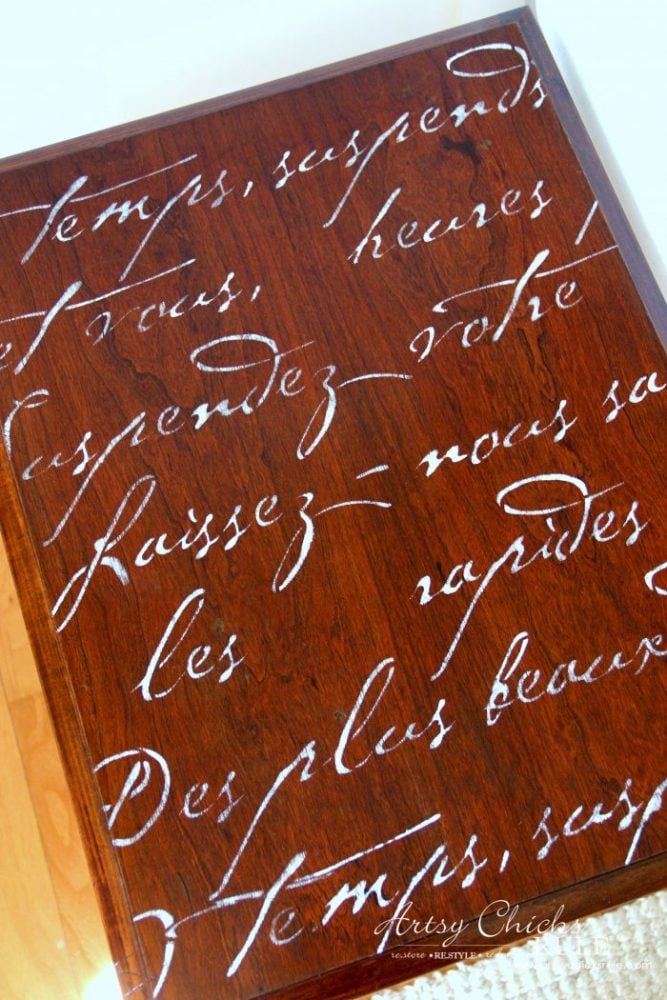 Temps, suspends
et vous, heures
Suspendez votre
Laissez-nous sa
les rapides
Des plus beaux
Temps, susp
Artsy Chicks
RULE
restore • RESTYLE •